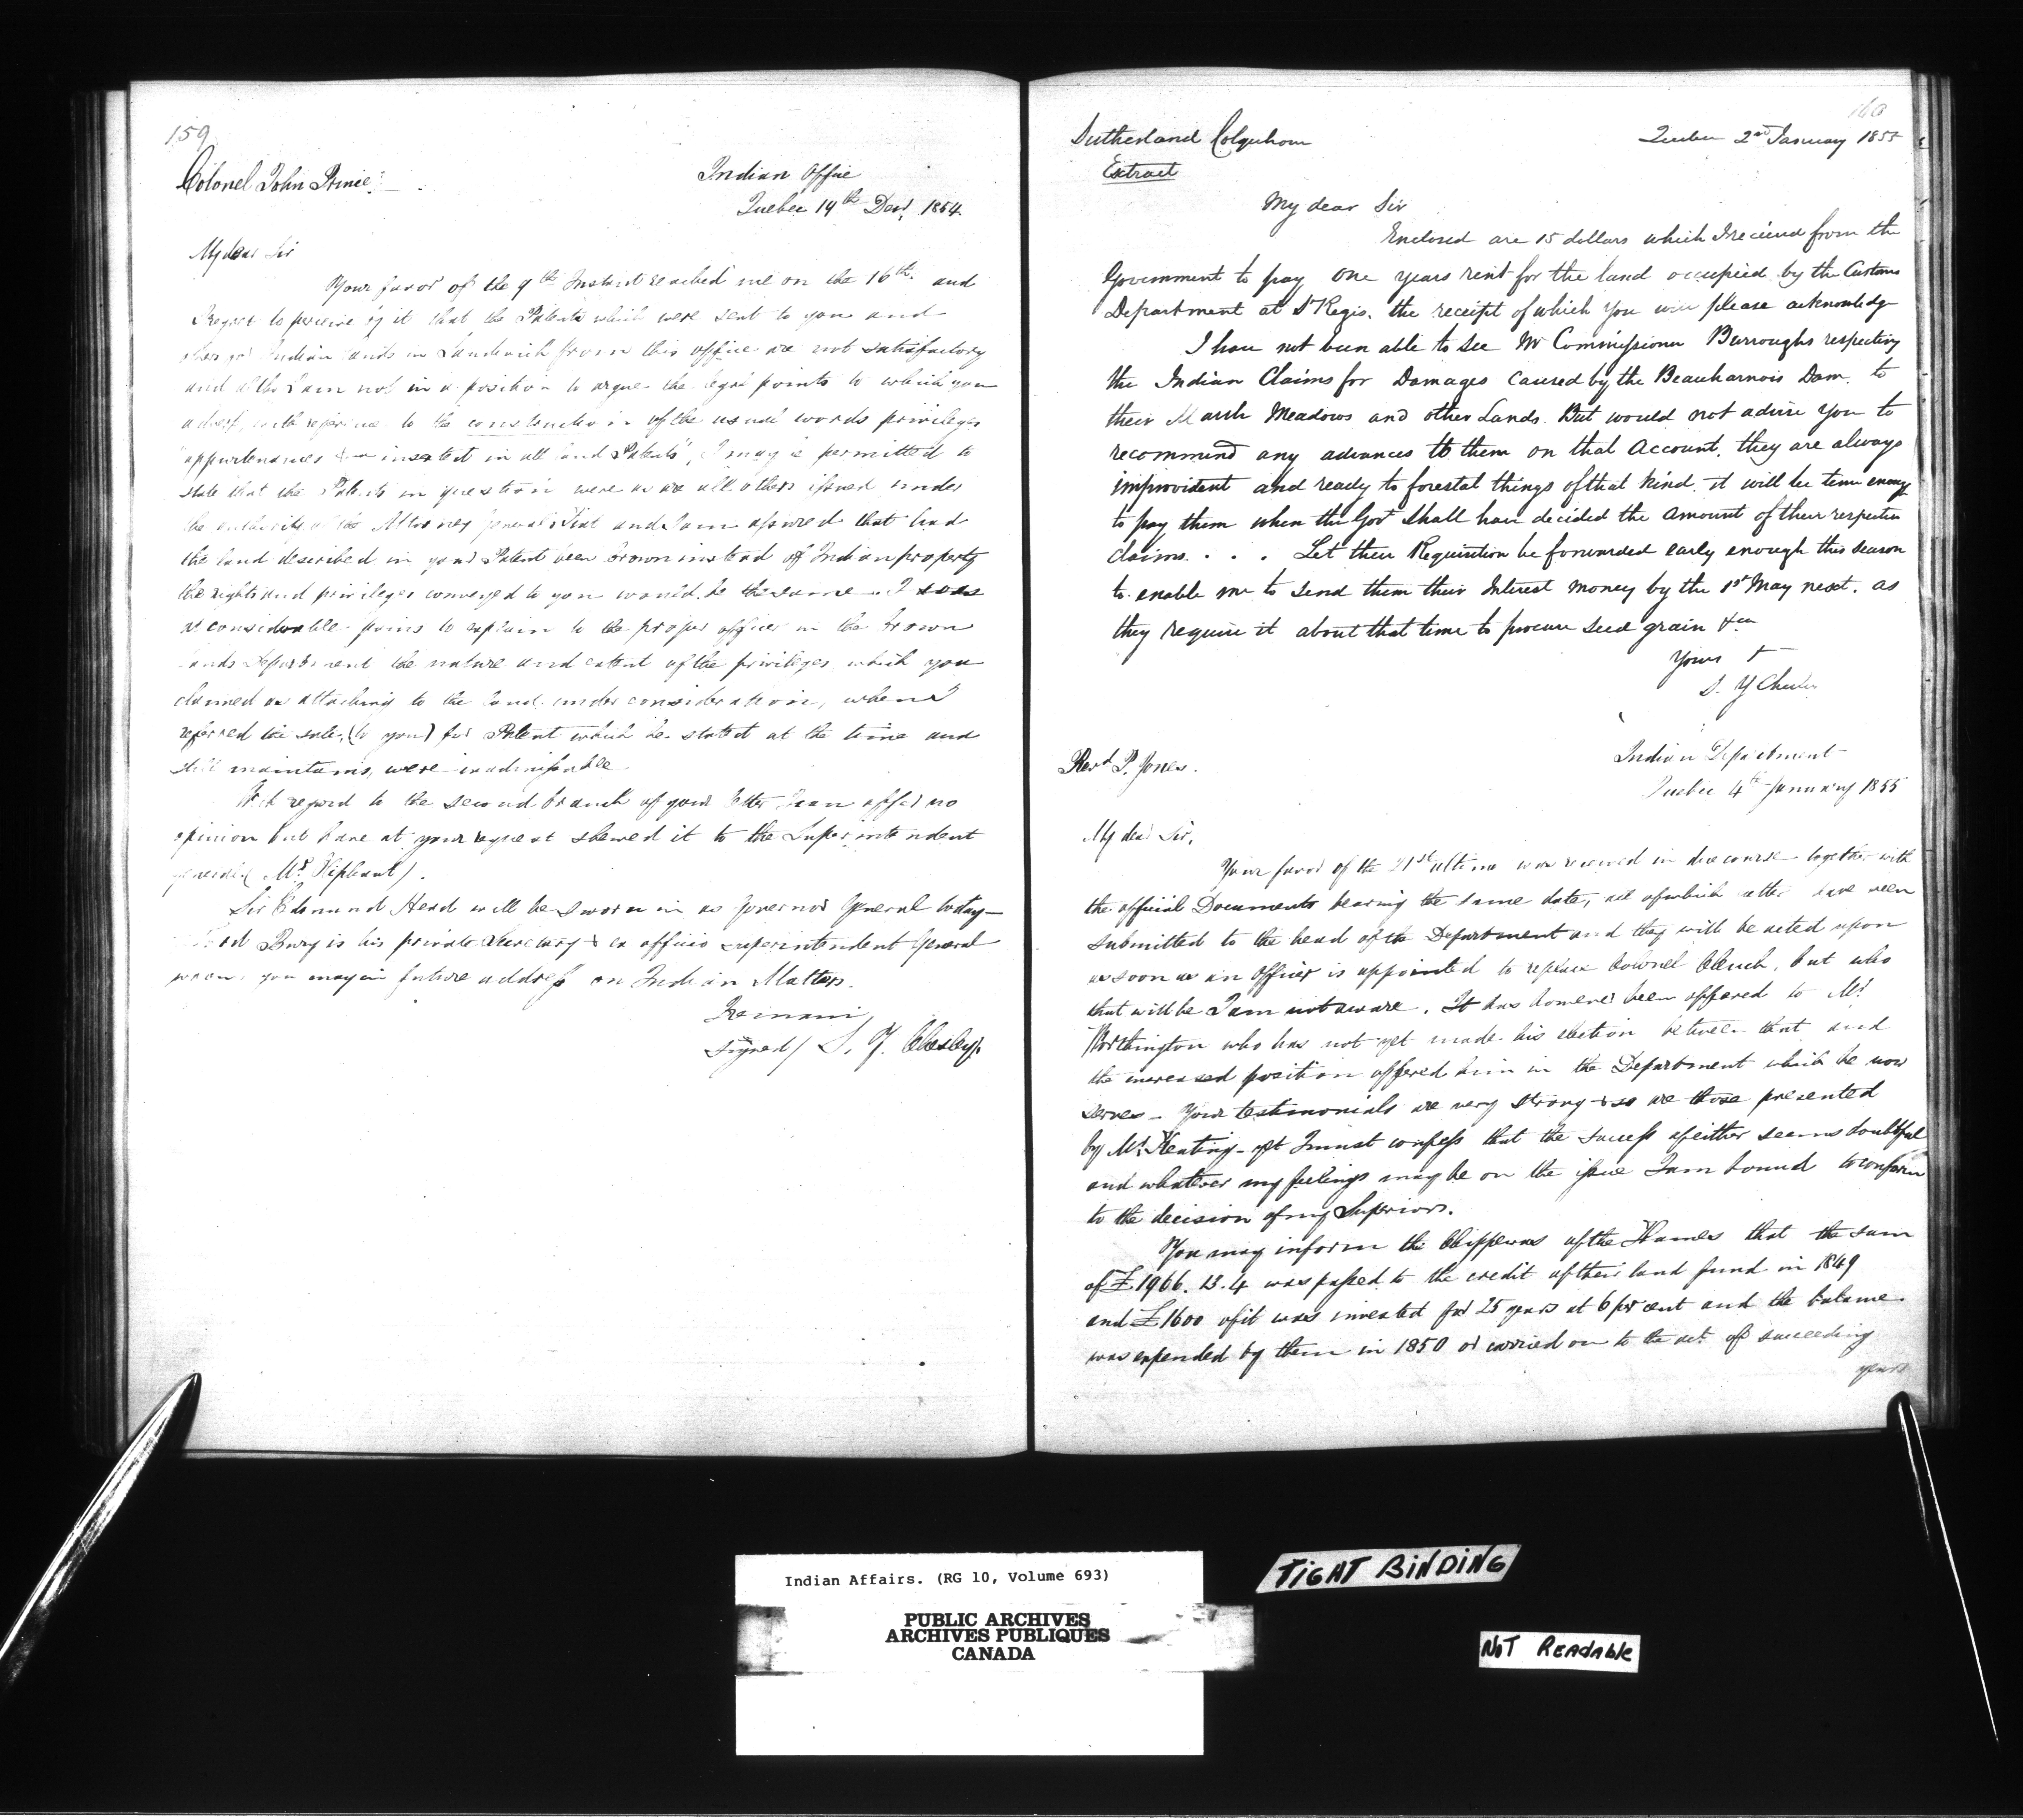 159
Colonel John Prince
Indian Office
Quebec 19th Decr 1854.
My dear Sir
Your favor of the 9th Instant reached me on the 16th and
I regret to perceive by it that the Patents which were sent to you and
Indian lands in Sandwich from this office are not satisfactory
and altho I am not in a position to argue the legal points to which you
advert, with reference to the construction of the usual words privileges
appurtenances &c inserted in all land Patents, I may be permitted to
state that the Patents in question were as are all others issued under
the authority of the Attorney General's Fiat and I am assured that had
the land described in your Patent been Crown instead of Indian property
the rights and privileges conveyed to you would be the same. I was
at considerable pains to explain to the proper officer in the Crown
Lands Department the nature and extent of the privileges which you
claimed as attaching to the land under consideration, when I
referred the sale (to you) for Patent which he stated at the time and
still maintains, were inadmissable
With regard to the second branch of your letter I can offer no
opinion but have at your request shewed it to the Superintendent
General (Mr. Oliphant).
Sir Edmund Head will be sworn in as Governor General today—
Lord Bury is his private Secretary & ex officio Superintendent General
whom you may in future address on Indian Matters.
I remain
Signed/ S. Y. Chesley.
160
Sutherland Colquhoun
Quebec 2nd January 1855
Extract
My dear Sir
Enclosed are 15 dollars which I received from the
Government to pay one years rent for the land occupied by the Customs
Department at St Regis. the receipt of which you will please acknowledge
I have not been able to see Mr Commissioner Burroughs respecting
the Indian Claims for Damages caused by the Beauharnois Dam. to
their Marsh Meadows and other Lands. But would not advise you to
recommend any advances to them on that Account. they are always
improvident and ready to forestal things of that kind. it will be time enough
to pay them when the Govt shall have decided the amount of their respective
claims. . . . Let their Requisition be forwarded early enough this season
to enable me to send them their Interest money by the 1st May next. as
they require it about that time to procure seed grain &ca
Yours &
S. Y Chesley
Revd P. Jones.
Indian Department
Quebec 4th January 1855
My dear Sir,
Your favor of the 21st ultimo was received in due course together with
the official Documents bearing the same date, all of which latter have been
submitted to the head of the Department and they will be acted upon
as soon as an Officer is appointed to replace Colonel Clench, but who
that will be I am not aware. It has however been offered to Mr
Worthington who has not yet made his election between that and
the increased position offered him in the Department which he now
serves— Your testimonials are very strong & so are those presented
by Mr. Keating— yet I must confess that the success of either seems doubtful
and whatever my feelings may be on the issue I am bound to conform
to the decision of my Superiors.
You may inform the Chippewas of the Thames that the sum
of £1966. 13. 4 was passed to the credit of their land fund in 1849
and £1600 of it was invested for 25 years at 6 per cent and the balance
was expended by them in 1850 or carried on to the act. of succeeding
years
Indian Affairs. (RG 10, Volume 693)
PUBLIC ARCHIVES
ARCHIVES PUBLIQUES
CANADA
TIGHT BINDING
NOT READABLE